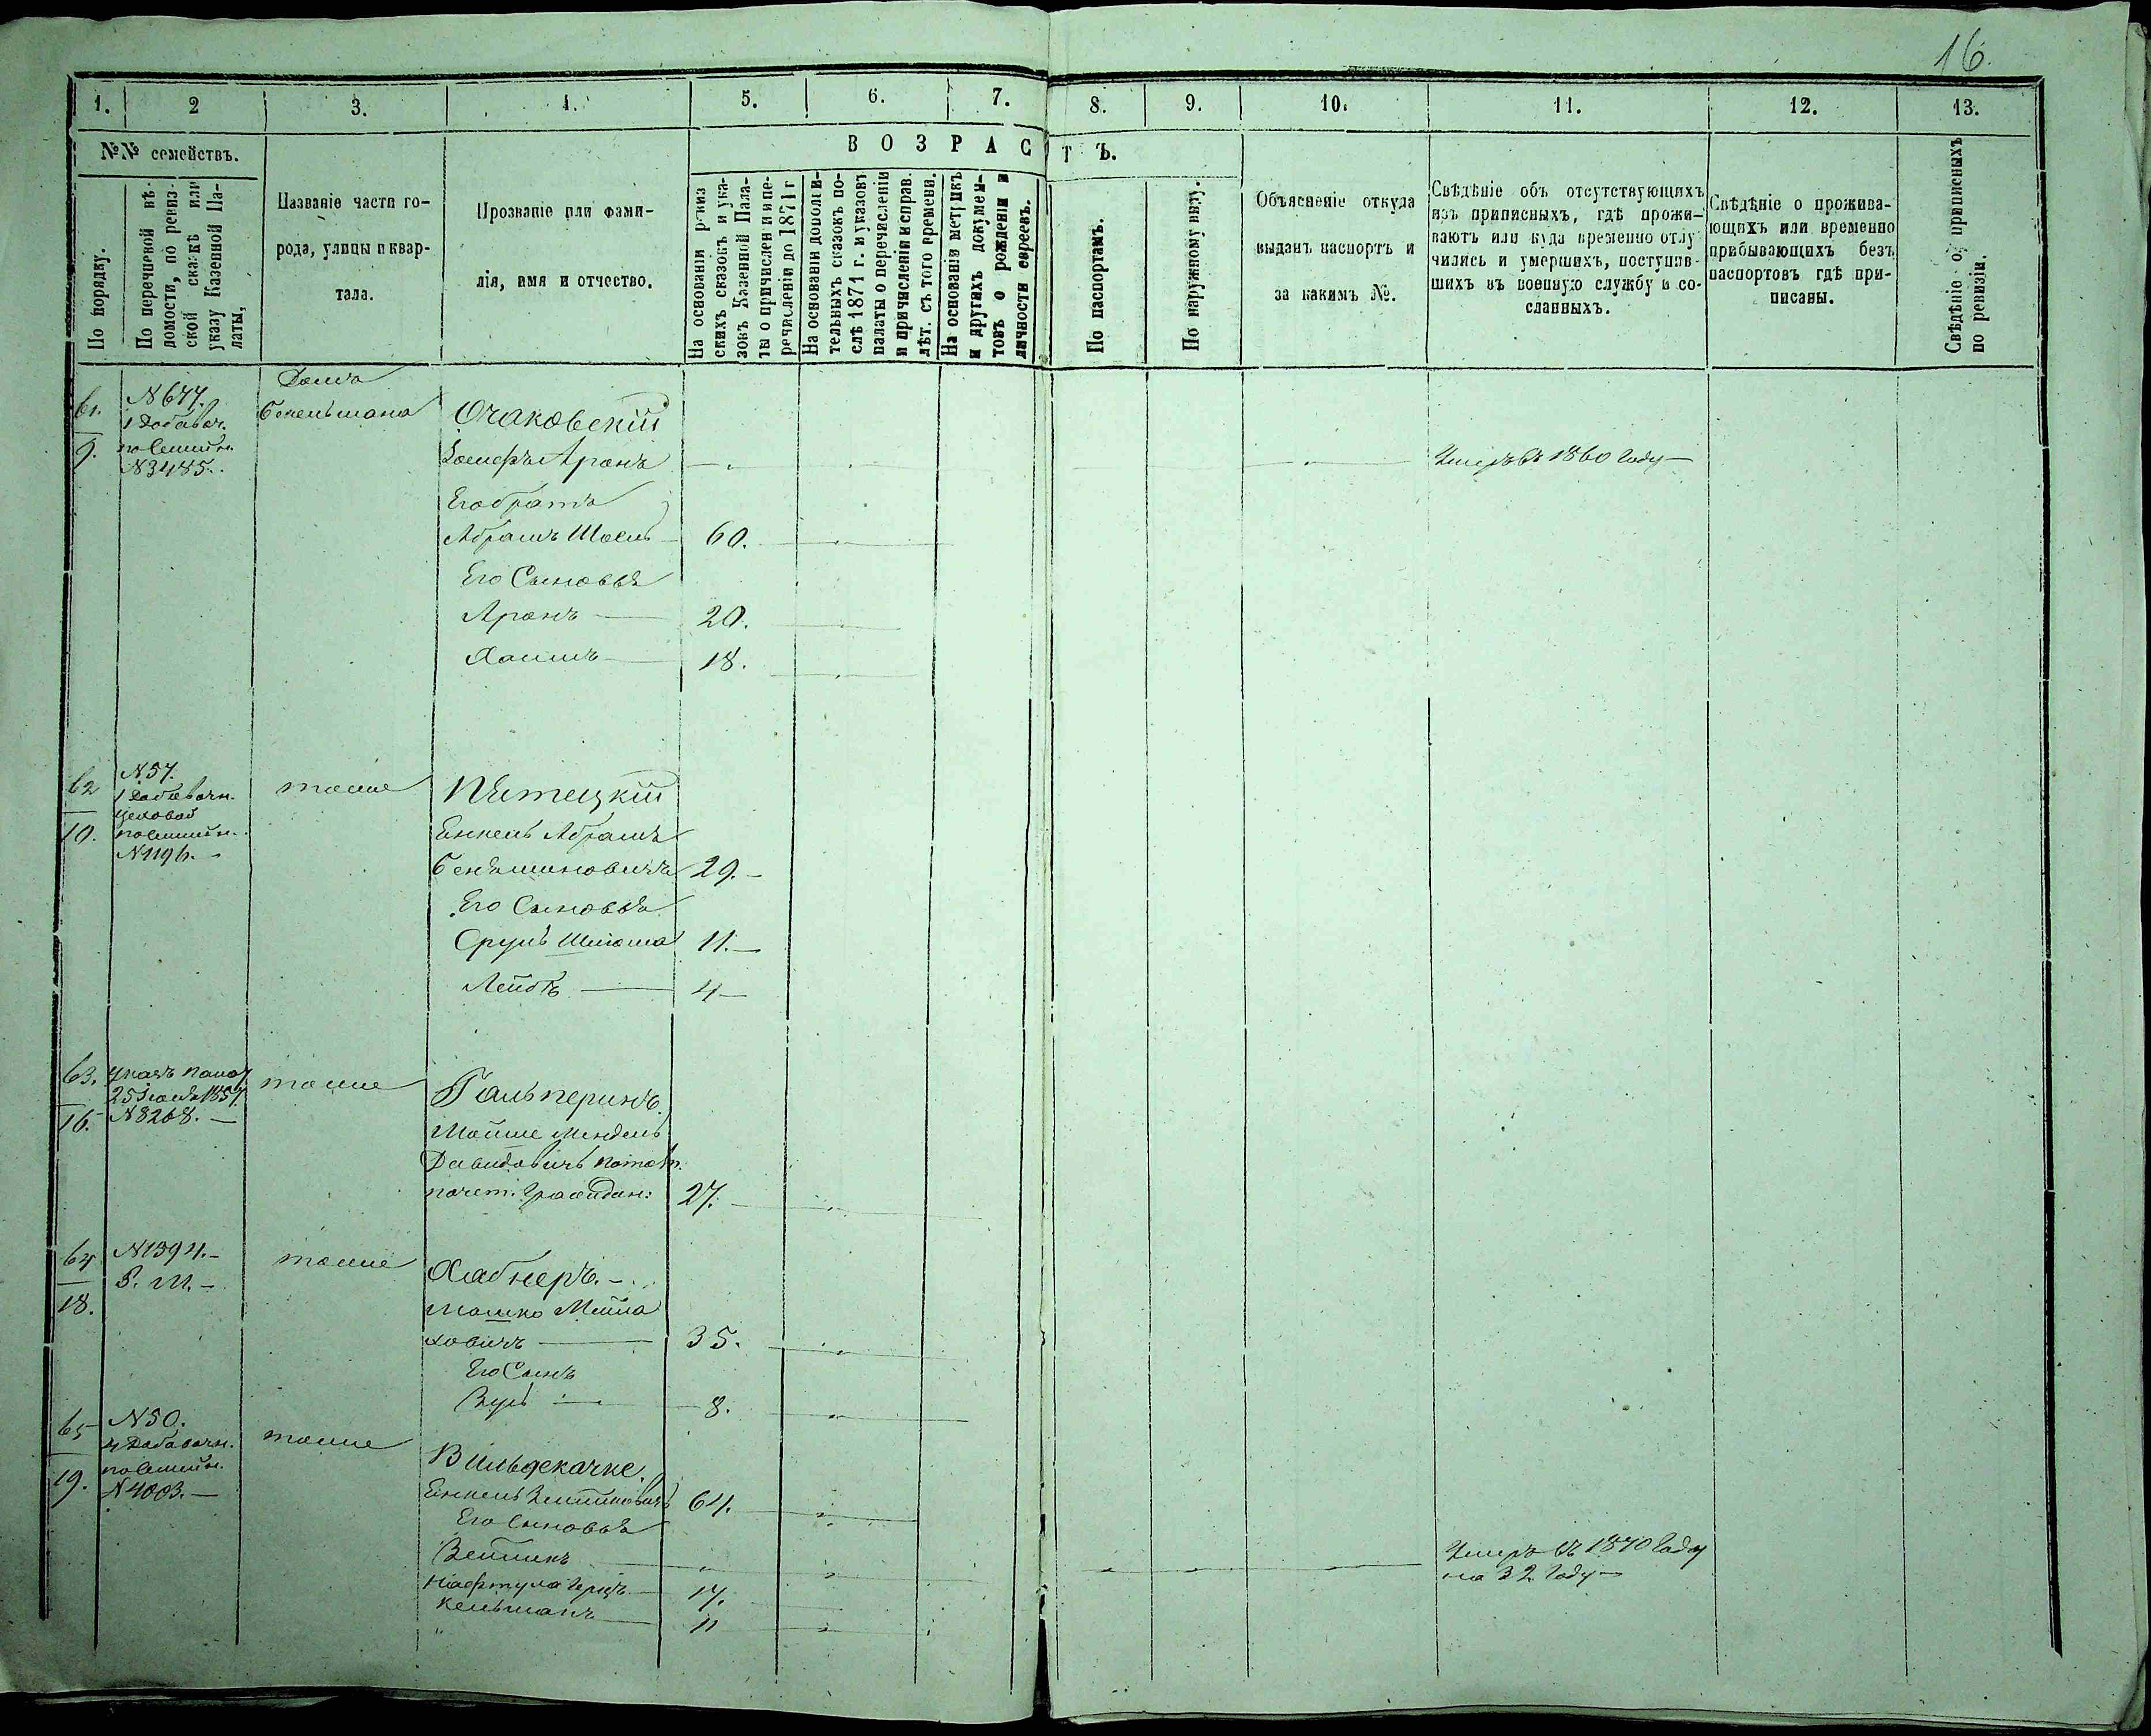 16.
1.
2
3.
4.
5.
6.
7.
8.
9.
10.
11.
12.
13.
№№ семействъ.
По порядку.
По перечневой вѣ-
домости, по ревиз-
ской сказкѣ или
указу Казенной Па-
латы,
Названіе части го-
рода, улицы и квар-
тала.
Прозваніе или фами-
лія, имя и отчество.
ВОЗРАСТЪ.
На основаніи ревиз
скихъ сказокъ и ука-
зовъ Казенной Пала-
ты о причисленіи и пе-
речисленіи до 1871 г
На основаніи дополни-
тельныхъ сказокъ по-
слѣ 1871 г. и указовъ
палаты о перечисленіи
и причисленіи и справ.
лѣт. съ того времени.
На основаніи метрикъ
и другихъ докумен-
товъ о рожденіи и
личности евреевъ.
По паспортамъ.
По наружному виду.
Объясненіе откуда
выданъ паспортъ и
за какимъ №.
Свѣдѣніе объ отсутствующихъ
изъ приписныхъ, гдѣ прожи-
ваютъ или куда временно отлу
чились и умершихъ, поступив-
шихъ въ военную службу и со-
сланныхъ.
Свѣдѣніе о прожива-
ющихъ или временно
пребывающихъ безъ
паспортовъ гдѣ при-
писаны.
Свѣдѣніе о приписныхъ
по ревизіи.
61.
9.
N 677.
1 Добавоч.
по Семейн.
N 3485.
Домъ
Очаковскій
Аронъ
Умеръ въ 1860 Году
Его братъ
Абрамъ 60.
Его Сыновья
Аронъ 20.
Хаимъ 18.
62
10.
N 57.
1 Добавочн.
Цеховой
по Семейн.
N 1196.
тоже
Пятецкій
Енкель Абрамъ
Беньяминовичъ 29.
Его Сыновья
Сруль 11.
Лейбъ 4
63.
16.
Указъ Палат.
1857.
N 8268.
тоже
Гальперинъ
Мойше Мендель
Давидовичъ Потом.
почет. Граждан: 27.
64
18.
N 1394.
тоже
Хабнеръ.
Мошко
ховичъ 35.
Его Сынъ
8.
65
19.
N 50.
4 Добавочн.
по Семейн.
N 4003.
тоже
Енкель 64.
Его Сыновья
Умеръ въ 1870 Году
на 32 Году
Нафтула Герцъ 17.
Кельманъ 11